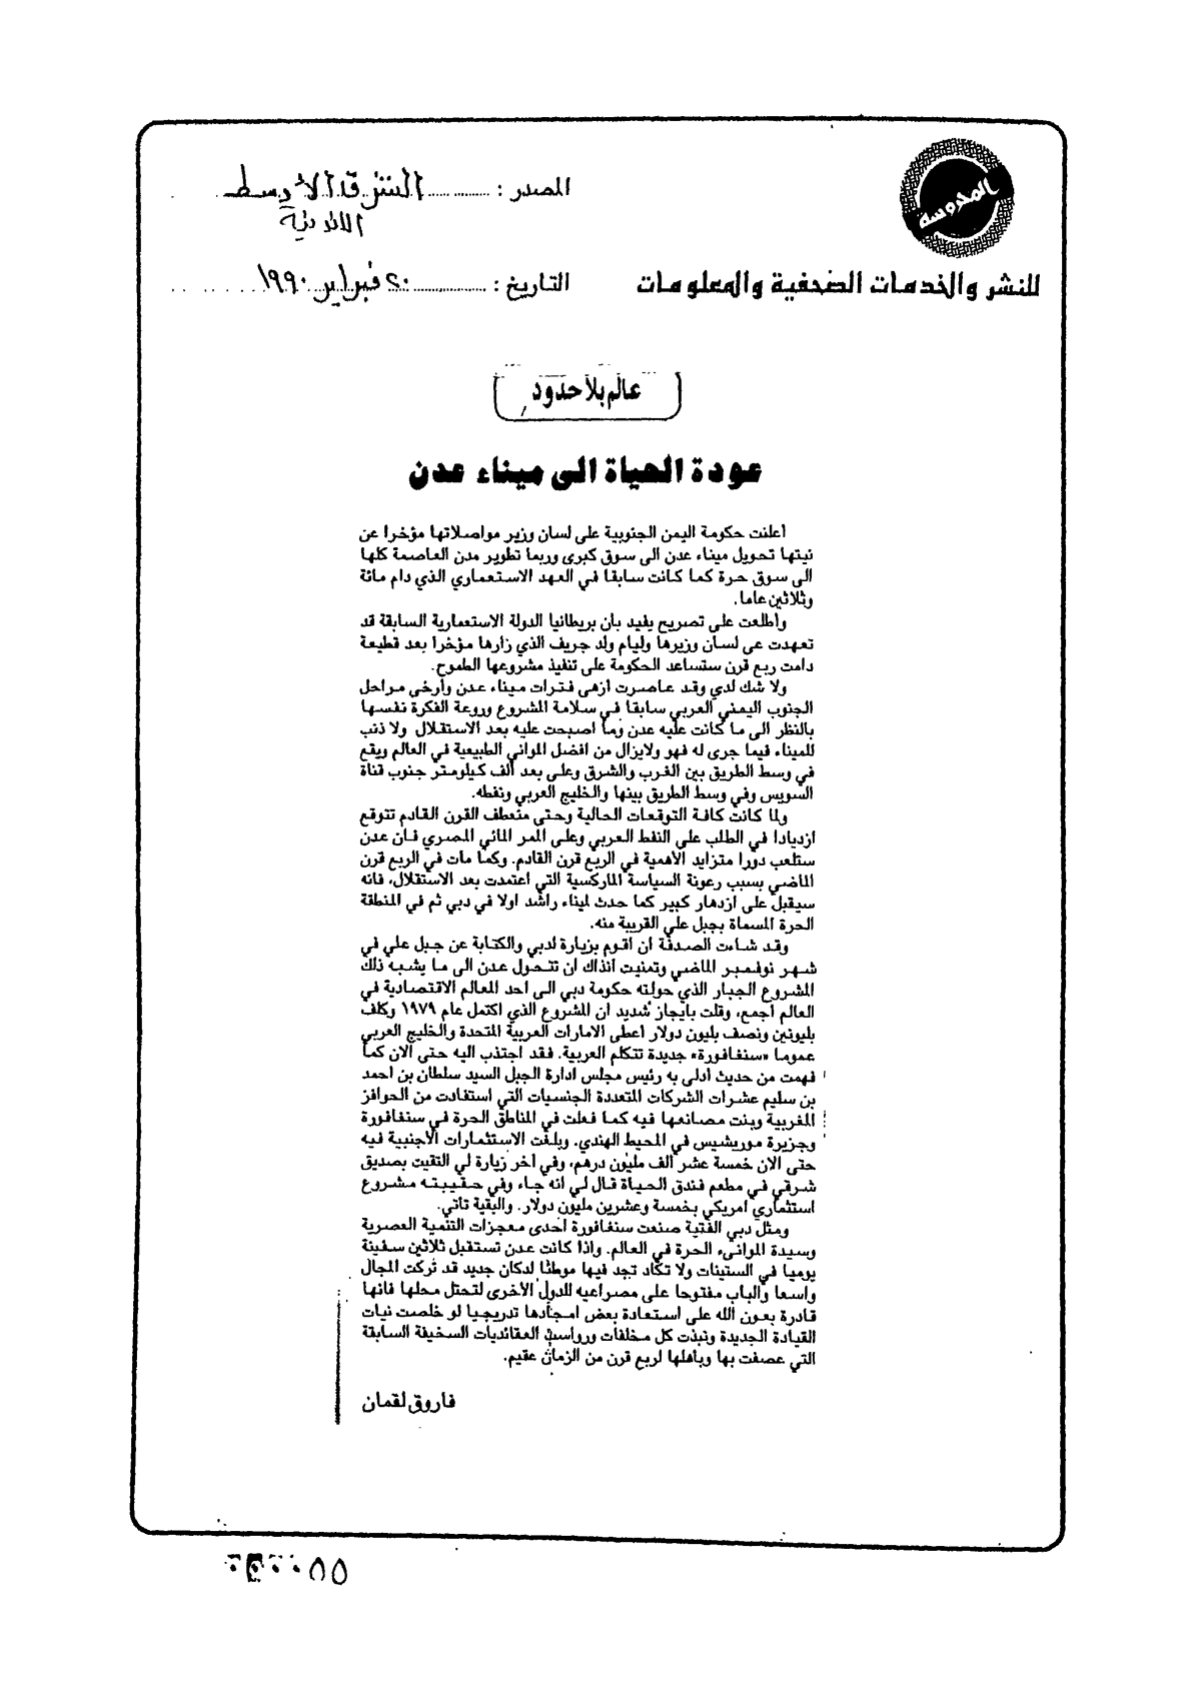 المحروسة
للنشر والخدمات الصحفية والمعلومات
المصدر : الشرق الأوسط
التاريخ : ٢٠ فبراير ١٩٩٠
عالم بلا حدود
عودة الحياة الى ميناء عدن
أعلنت حكومة اليمن الجنوبية على لسان وزير مواصلاتها مؤخرا عن
نيتها تحويل ميناء عدن الى سوق كبرى وربما تطوير مدن العاصمة كلها
الى سوق حرة كما كانت سابقا في العهد الاستعماري الذي دام مائة
وثلاثين عاما.
وأطلعت على تصريح يفيد بأن بريطانيا الدولة الاستعمارية السابقة قد
تعهدت عى لسان وزيرها وليام ولد جريف الذي زارها مؤخرا بعد قطيعة
دامت ربع قرن ستساعد الحكومة على تنفيذ مشروعها الطموح.
ولا شك لدي وقد عاصرت أزهى فترات ميناء عدن وأرخى مراحل
الجنوب اليمني العربي سابقا في سلامة المشروع وروعة الفكرة نفسها
بالنظر الى ما كانت عليه عدن وما اصبحت عليه بعد الاستقلال ولا ذنب
للميناء فيما جرى له فهو ولايزال من افضل المواني الطبيعية في العالم ويقع
في وسط الطريق بين الغرب والشرق وعلى بعد ألف كيلومتر جنوب قناة
السويس وفي وسط الطريق بينها والخليج العربي ونفطه.
ولما كانت كافة التوقعات الحالية وحتى منعطف القرن القادم تتوقع
ازديادا في الطلب على النفط العربي وعلى الممر المائي المصري فان عدن
ستلعب دورا متزايد الأهمية في الربع قرن القادم. وكما مات في الربع قرن
الماضي بسبب رعونة السياسة الماركسية التي اعتمدت بعد الاستقلال، فانه
سيقبل على ازدهار كبير كما حدث لميناء راشد اولا في دبي ثم في المنطقة
الحرة المسماة بجبل علي القريبة منه.
وقد شاءت الصدفة ان اقوم بزيارة لدبي والكتابة عن جبل علي في
شهر نوفمبر الماضي وتمنيت انذاك ان تتحول عدن الى ما يشبه ذلك
المشروع الجبار الذي حولته حكومة دبي الى احد المعالم الاقتصادية في
العالم اجمع، وقلت بايجاز شديد ان المشروع الذي اكتمل عام ١٩٧٩ وكلف
بليونين ونصف بليون دولار اعطى الامارات العربية المتحدة والخليج العربي
عموما «سنغافورة» جديدة تتكلم العربية. فقد اجتذب اليه حتى الان كما
فهمت من حديث أدلى به رئيس مجلس ادارة الجبل السيد سلطان بن احمد
بن سليم عشرات الشركات المتعددة الجنسيات التي استفادت من الحوافز
المغرية وبنت مصانعها فيه كما فعلت في المناطق الحرة في سنغافورة
وجزيرة موريشيس في المحيط الهندي. وبلغت الاستثمارات الأجنبية فيه
حتى الان خمسة عشر الف مليون درهم، وفي اخر زيارة لي التقيت بصديق
شرقي في مطعم فندق الحياة قال لي انه جاء وفي حقيبته مشروع
استثماري امريكي بخمسة وعشرين مليون دولار. والبقية تأتي.
ومثل دبي الفتية صنعت سنغافورة احدى معجزات التنمية العصرية
وسيدة الموانىء الحرة في العالم. واذا كانت عدن تستقبل ثلاثين سفينة
يوميا في الستينات ولا تكاد تجد فيها موطئا لدكان جديد قد تركت المجال
واسعا والباب مفتوحا على مصراعيه للدول الأخرى لتحتل محلها فانها
قادرة بعون الله على استعادة بعض امجادها تدريجيا لو خلصت نيات
القيادة الجديدة ونبذت كل مخلفات ورواسب العقائديات السخيفة السابقة
التي عصفت بها وبأهلها لربع قرن من الزمان عقيم.
فاروق لقمان